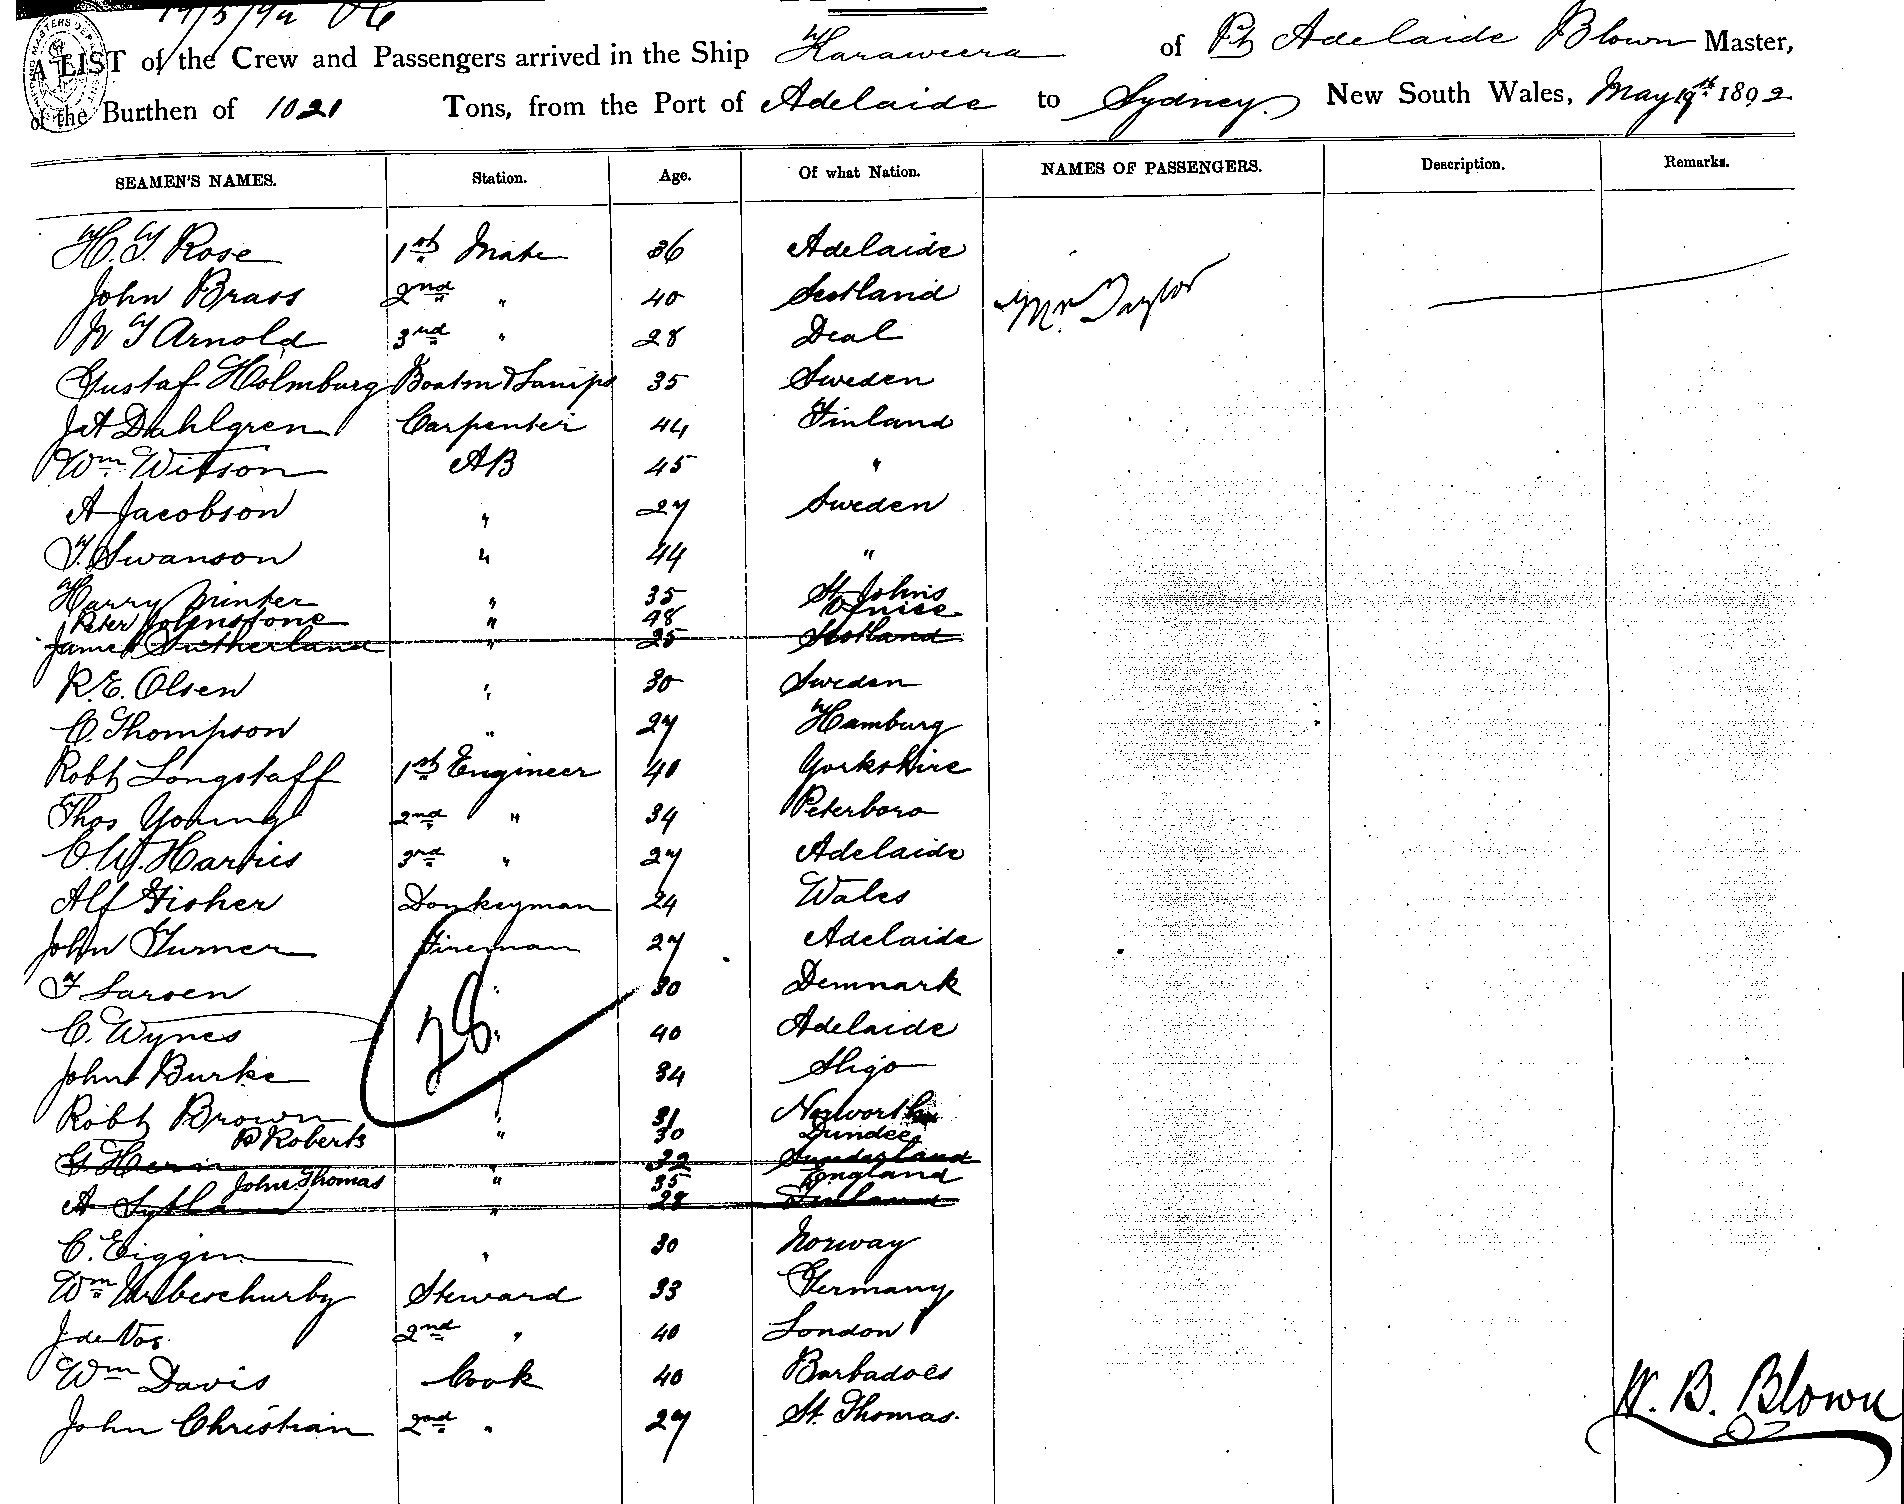 19/5/92
A LIST of the Crew and Passengers arrived in the Ship Karaweera of Pt Adelaide Blown Master,
of the Burthen of 1021 Tons, from the Port of Adelaide to Sydney. New South Wales, May 19th 1892
SEAMEN'S NAMES. Station. Age. Of what Nation. NAMES OF PASSENGERS. Description. Remarks.
H. J. Rose 1st Mate 36 Adelaide
John Brass 2nd " 40 Scotland Mr Taylor
W J Arnold 3rd " 28 Deal
Gustaf Holmburg 35 Sweden
J A Dahlgren Carpenter 44 Finland
Wm Witson AB 45 "
A Jacobson " 27 Sweden
J. Swanson " 44 "
Harry Minter " 35 St Johns
Peter Johnstone " 48 Venice
James Sutherland " 25 Scotland
R.E. Olsen " 30 Sweden
C. Thompson " 27 Hamburg
Robt Longstaff 1st Engineer 40 Yorkshire
Thos Young 2nd " 34 Peterboro
C.W. Harris 3rd " 27 Adelaide
Alf Fisher Donkeyman 24 Wales
John Turner Fireman 27 Adelaide
F Larsen 30 Denmark
C. Wynes 40 Adelaide
John Burke 34 Sligo
Robt Brown " 31
P Roberts " 30 Dundee
G. " 32 Sunderland
John Thomas " 35 England
A " 28 Finland
C. Eiggin " 30 Norway
Wm Steward 33 Germany
J de Vos. 2nd " 40 London
Wm Davis Cook 40 Barbadoes
John Christian 2nd " 27 St. Thomas.
W. B. Blown